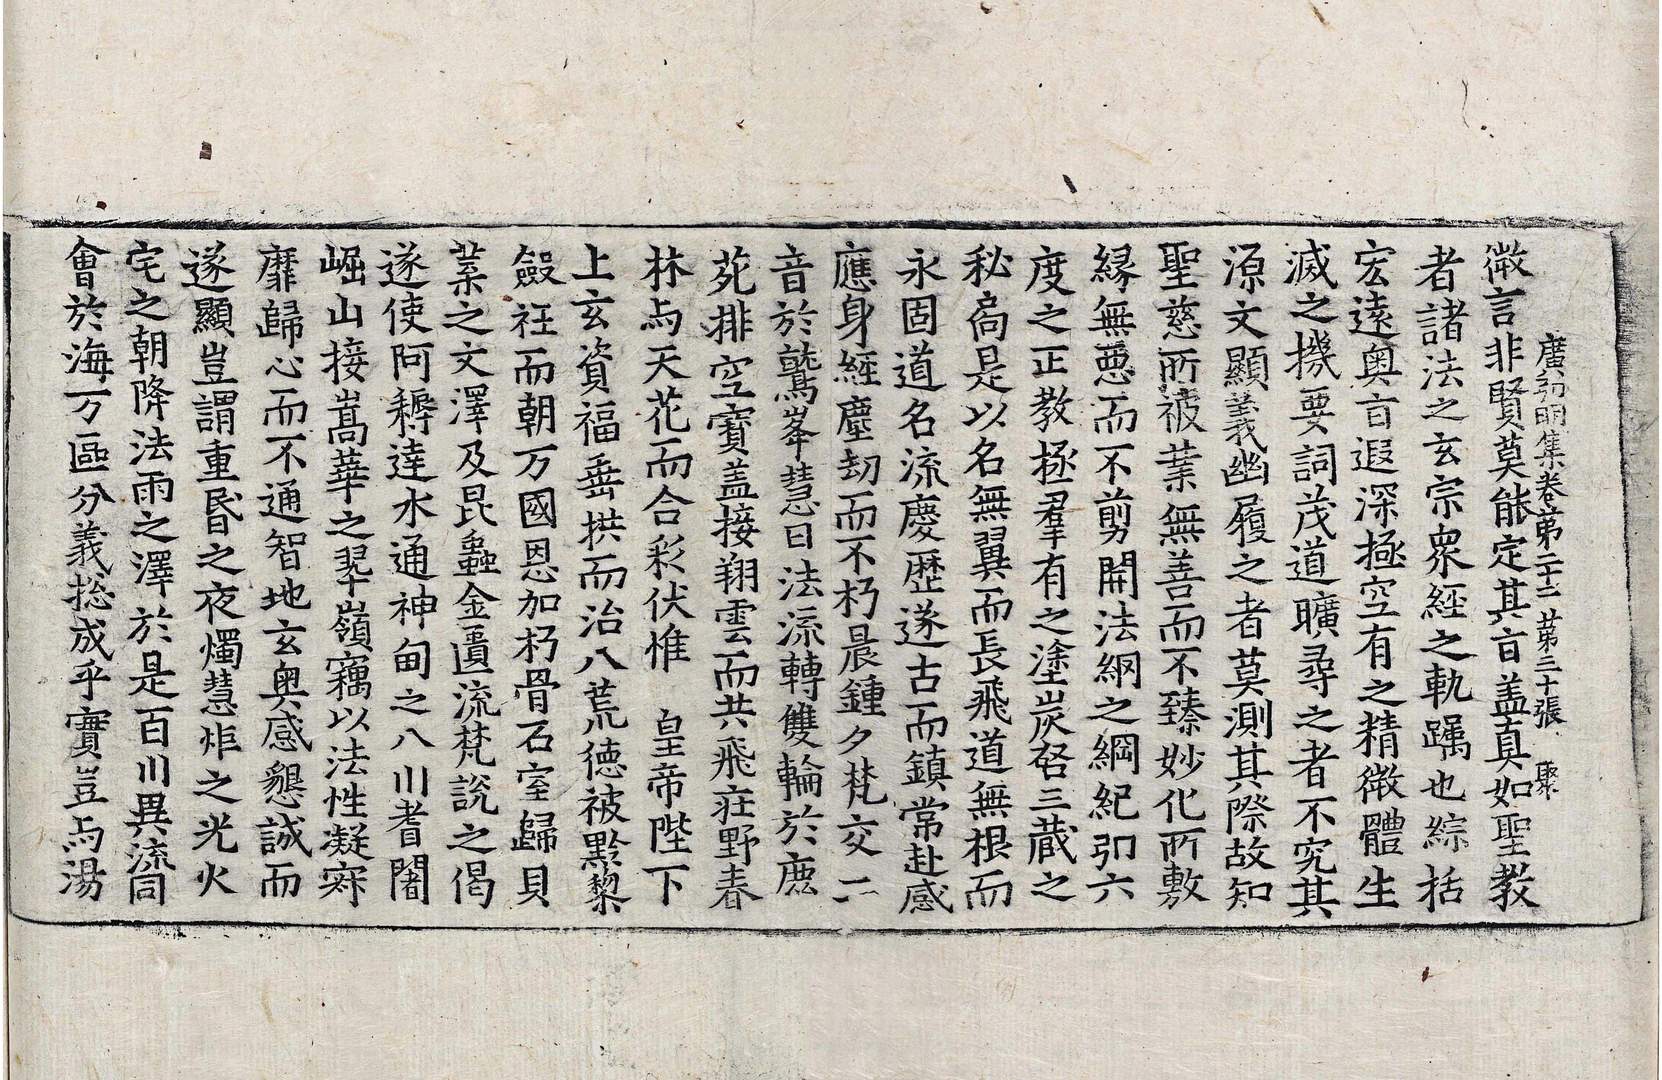 微言非賢莫能定其㫖盖真如聖教
廣弘明集卷第二十二 苐三十張 聚
者諸法之玄宗衆經之軌躅也綜括
宏遠奥㫖遐深極空有之精微體生
滅之機要詞茂道曠尋之者不究其
源文顯義幽履之者莫測其際故知
聖慈所被業無善而不臻妙化所敷
縁無惡而不剪開法網之綱紀弘六
度之正教拯羣有之塗炭啓三藏之
秘扃是以名無翼而長飛道無根而
永固道名流慶歷遂古而鎮常赴感
應身經塵劫而不朽晨鍾夕梵交二
音於鷲峯慧日法流轉雙輪於鹿
苑排空寶盖接翔雲而共飛莊野春
林与天花而合彩伏惟 皇帝陛下
上玄資福垂拱而治八荒德被黔黎
斂衽而朝万國恩加朽骨石室歸貝
葉之文澤及昆蟲金匱流梵說之偈
遂使阿耨達水通神甸之八川耆闍
崛山接嵩華之翠嶺竊以法性凝寂
靡歸心而不通智地玄奥感懇誠而
遂顯豈謂重昏之夜燭慧炬之光火
宅之朝降法雨之澤於是百川異流同
會於海万區分義揔成乎實豈与湯